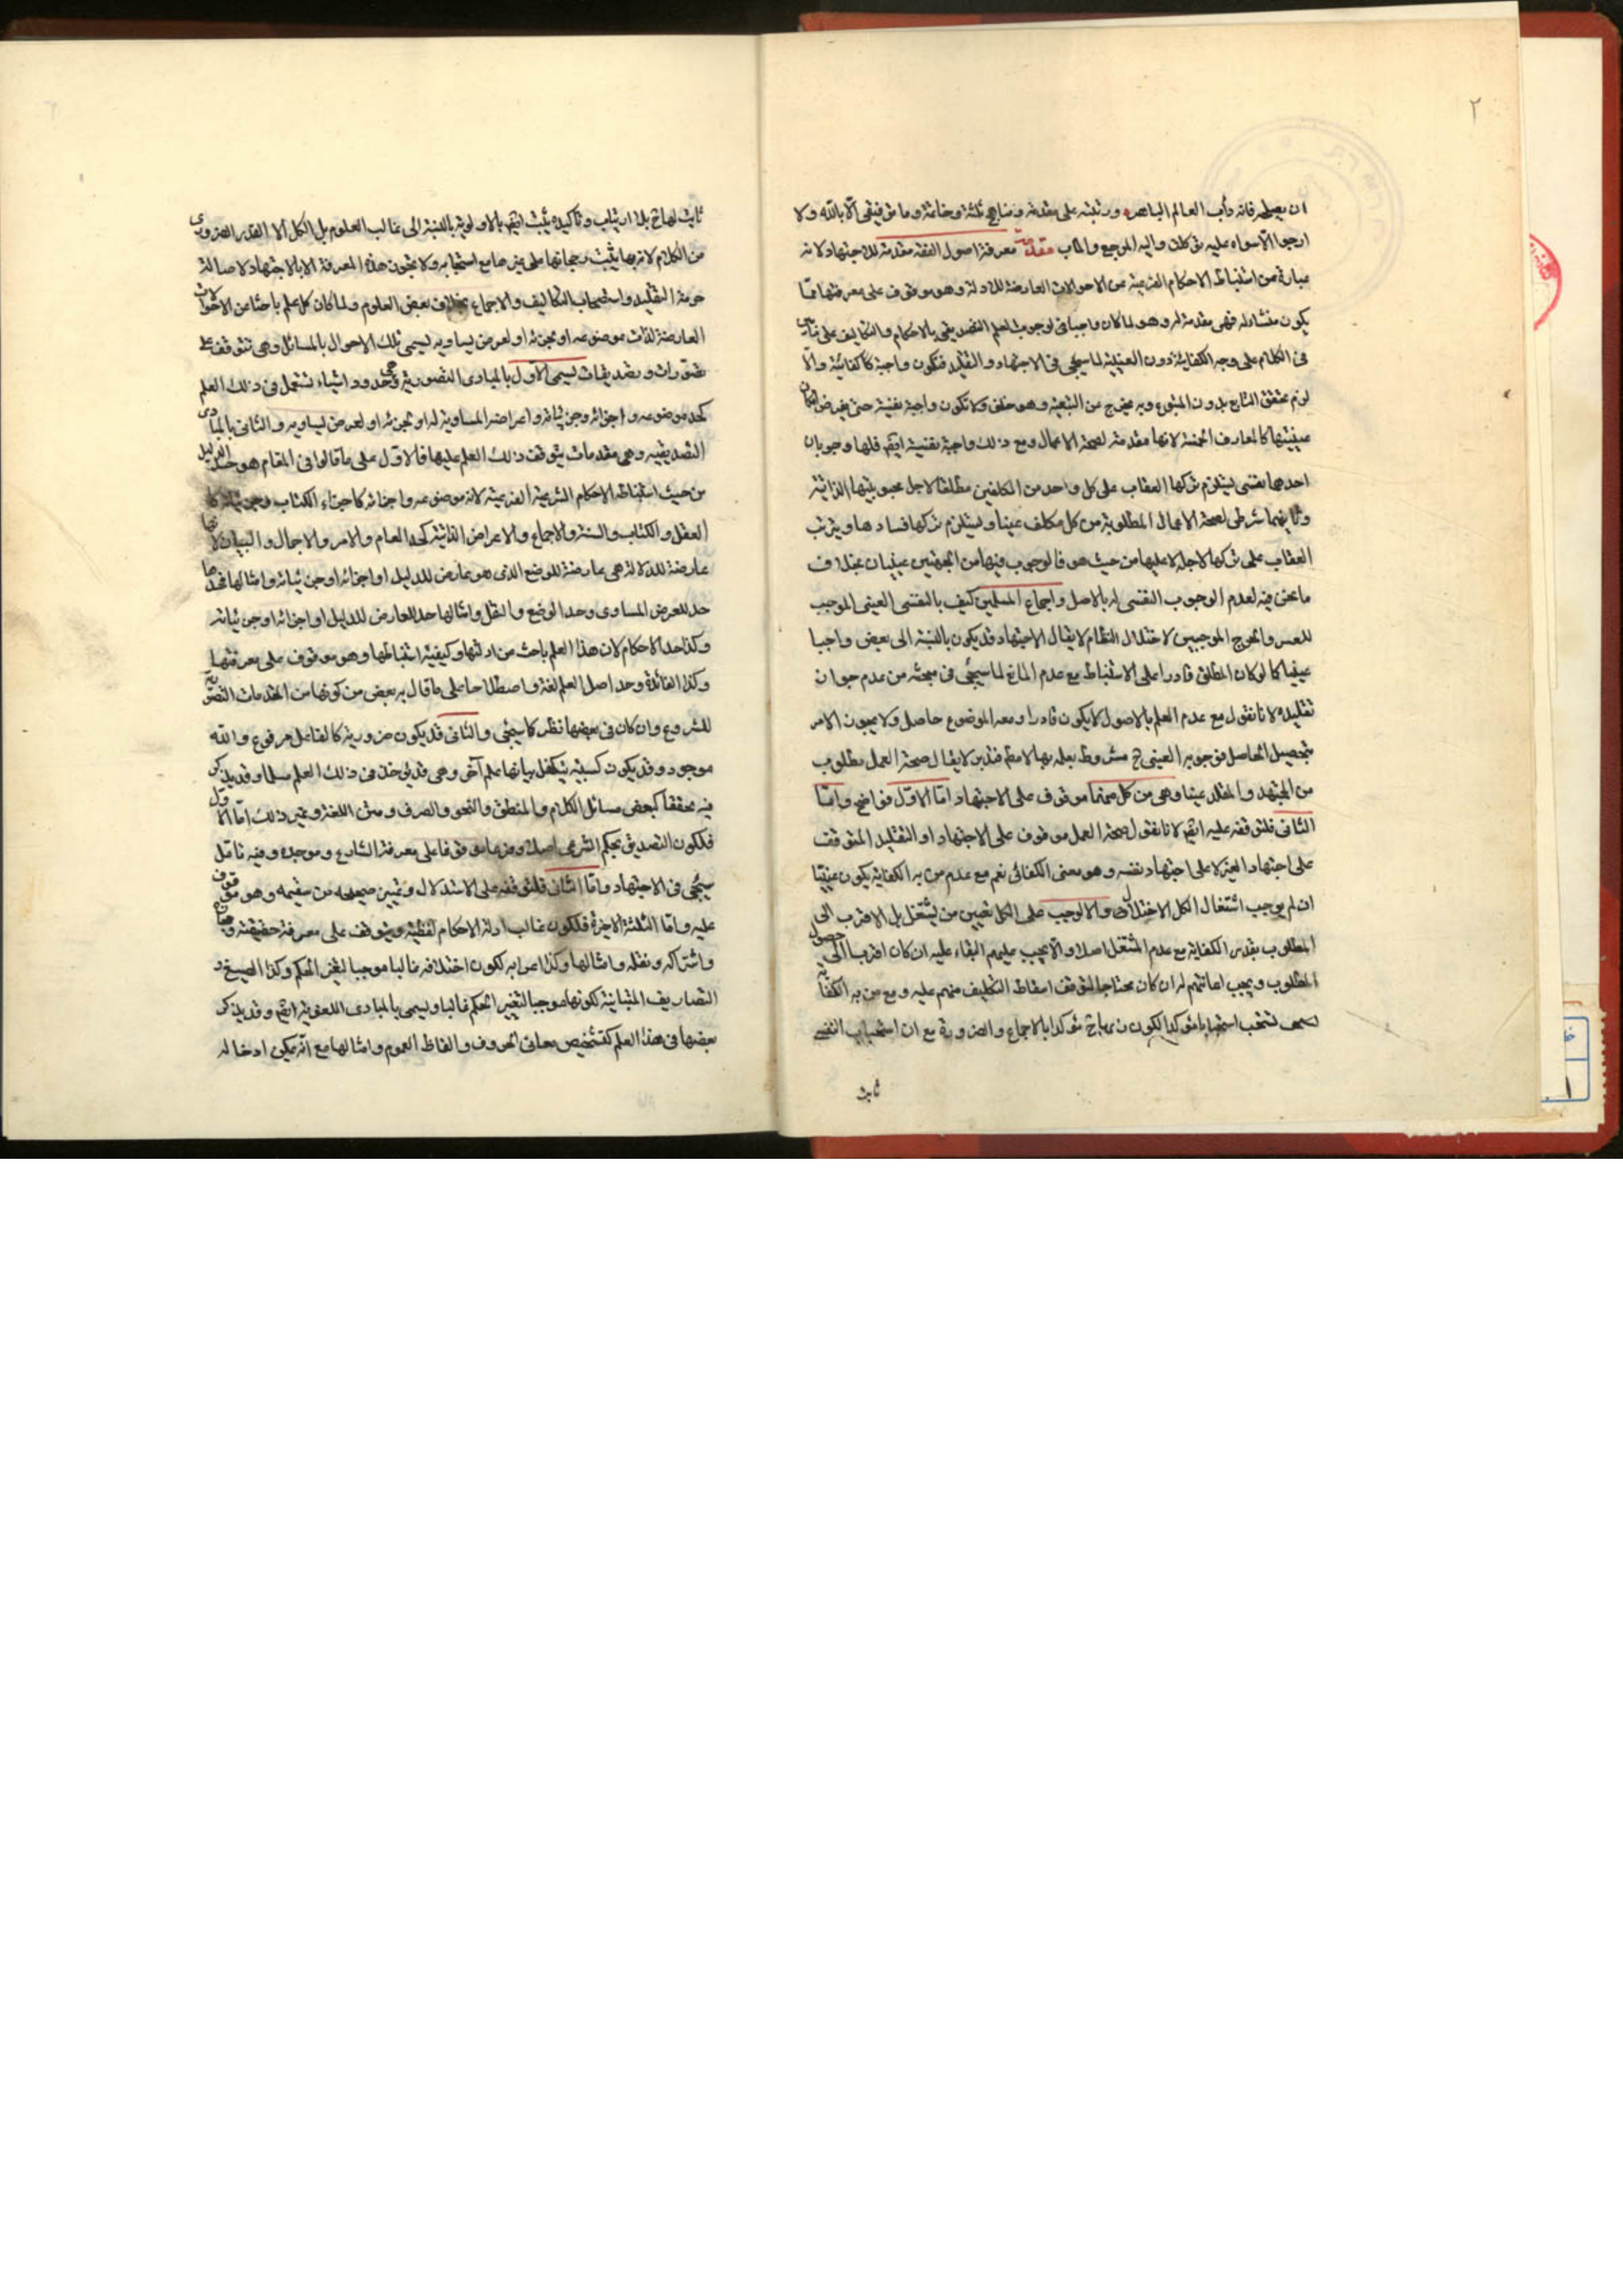 ٢
ان يعطيه فانه دأب العالم الباهر ورتبته على مقدمة ومناهج ثلثة وخاتمة وما توفيقى الا بالله ولا
ارجوا الا سواه عليه توكلت واليه المرجع والمآب مقدمة معرفة اصول الفقه مقدمة للاجتهاد لانه
عبارة من استنباط الاحكام الشرعية من الاحوالات العارضة للادلة وهو موقوف على معرفتها مما
يكون منشأ له فهى مقدمة له وهو لما كان واجبا فى لوجوب العلم التصديقى بالاحكام والتكاليف على
فى الكلام على وجه الكفاية دون العينية لما سيجئ فى الاجتهاد والتقليد فتكون واجبة كا كفائية والّا
لزم تحقق التابع بدون المتبوع وبه يخرج من التبعية وهو خلف ولا تكون واجبة نفسية حتى يفرض امكان
عينيتها كالمعارف الخمسة لانها مقدمة لصحة الاعمال ومع ذلك واجبة نفسية ايضا فلها وجوبان
احدهما نفسى يستلزم تركها العقاب على كل واحد من المكلفين مطلقا لاجل محبوبيتها الذاتية
وثانيهما شرطى لصحة الاعمال المطلوبة من كل مكلف عينا ويستلزم تركها فسادها ويترتب
العقاب على تركها لاجله لا عليها من حيث هو فالوجوب فيها من الجهتين عينيان بخلاف
ما نحن فيه لعدم الوجوب النفسى له بالاصل واجماع المسلمين كيف بالنفسى العينى الموجب
للعسر والحرج الموجبين لاختلال النظام لا يقال الاجتهاد قد يكون بالنسبة الى بعض واجبا
عينيا كما لو كان المطلق قادرا على الاستنباط مع عدم المانع لما سيجئ فى مبحثه من عدم جواز
تقليده لانا نقول مع عدم العلم بالاصول لا يكون قادرا ومعه الموضوع حاصل ولا يجوز الامر
بتحصيل الحاصل فوجوبه العينى ح مشروط بعلمه بها لا مطلقا لا يقال صحة العمل مطلوب
من المجتهد والمقلد عينا وهى من كل منهما موقوف على الاجتهاد امّا الاوّل فواضح وامّا
الثانى فلتوقفه عليه ايضا لانا نقول صحة العمل موقوف على الاجتهاد او التقليد المتوقف
على اجتهاد الغير لا على اجتهاد نفسه وهو معنى الكفائى نعم مع عدم من به الكفاية يكون عينيا
ان لم يوجب اشتغال الكل الاختلال والا لوجب على الكل تعيين من يشتغل بل الاقرب الى
المطلوب بقدر الكفاية مع عدم المشتغل اصلا والّا يجب عليهم البقاء عليه ان كان اقرب الى حصول
المطلوب ويجب اعانتهم له ان كان محتاجا لتوقف اسقاط التكليف منهم عليه ومع من به الكفاية
تستحب استحبابا مؤكدا لكون مؤكدا بالاجماع والضرورة مع ان استحباب النفسى
ثابت
ثابت لها ح بلا ارتياب وتأكيده يثبت ايضا بالاولوية بالنسبة الى غالب العلوم بل الكل الا القدر الضرورى
من الكلام لانه بها يثبت رجحانها على غيرها مع استحبابه ولا يجوز هذه المعرفة الا بالاجتهاد لاصالة
حرمة التقليد واستصحاب التكاليف والاجماع بخلاف بعض العلوم ولما كان كل علم باحثا عن الاحوالات
العارضة لذات موضوعه او لجزئه او لعرض يساويه يسمى تلك الاحوال بالمسائل وهى تتوقف على
تصورات وتصديقات يسمى الاوّل بالمبادى التصورية وهى حدود اشياء تشتمل فى ذلك العلم
كحد موضوعه واجزائه وجزئياته واعراضه المساوية له او لجزئه او لعرض يساويه والثانى بالمبادى
التصديقية وهى مقدمات يتوقف ذلك العلم عليها فالاول على ما قالوا فى المقام هو حد الدليل
من حيث استنباط الاحكام الشرعية الفرعية لانه موضوعه واجزائه كاجزاء الكتاب وجزئياته كا
العقل والكتاب والسنة والاجماع والاعراض الذاتية كحد العام والامر والاجمال والبيان لانها
عارضة للدلالة هى عارضة للوضع الذى هو عارض للدليل او اجزائه او جزئياته وامثالها
حد للعرض المساوى وحد الوضع والنقل وامثالها حد للعارض للدليل او اجزائه او جزئياته
وكذا حد الاحكام لان هذا العلم باحث من ادلتها وكيفية استنباطها وهو موقوف على معرفتها
وكذا الفائدة وحد اصل العلم لغة واصطلاحا على ما قال به بعض من كونها من المقدمات التصورية
للشروع وان كان فى بعضها نظر كما سيجئ والثانى قد يكون ضرورية كالفاعل مرفوع والله
موجود وقد يكون كسبية يتكفل بيانها علم آخر وهى قد يؤخذ فى ذلك العلم مسلما وقد يذكر
فيه محققا كبعض مسائل الكلام والمنطق والنحو والصرف ومتن اللغة وغير ذلك امّا الاول
فلكون التصديق بحكم الشرعى اصلا وفرعا موقوفا على معرفة الشارع وموجده وفيه تامّل
سيجئ فى الاجتهاد وامّا الثانى فلتوقفه على الاستدلال وتميين صحيحه من سقيمه وهو موقوف
عليه وامّا الثلثة الاخيرة فلكون غالب ادلة الاحكام لفظية ويتوقف على معرفة حقيقته ومجازه
واشتراكه ونقله وامثالها وكذا اعرابه لكون اختلافه غالبا موجبا لتغير الحكم وكذا الصيغ و
التصاريف المتباينة لكونها موجبا لتغيير الحكم غالبا ويسمى بالمبادى اللغوية ايضا وقد يذكر
بعضها فى هذا العلم كتشخيص معانى الحروف والفاظ العموم وامثالها مع انه يمكن ادخاله